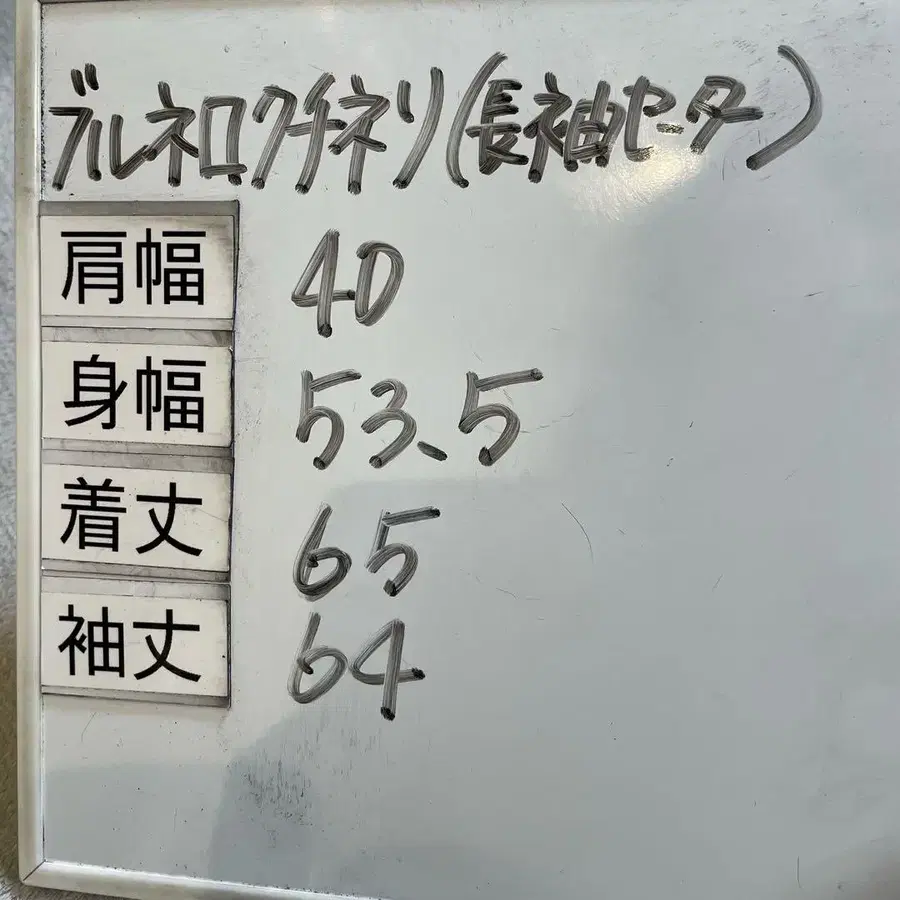 ブルネロクチネリ(長袖セーター)
肩幅 40
身幅 53.5
着丈 65
袖丈 64